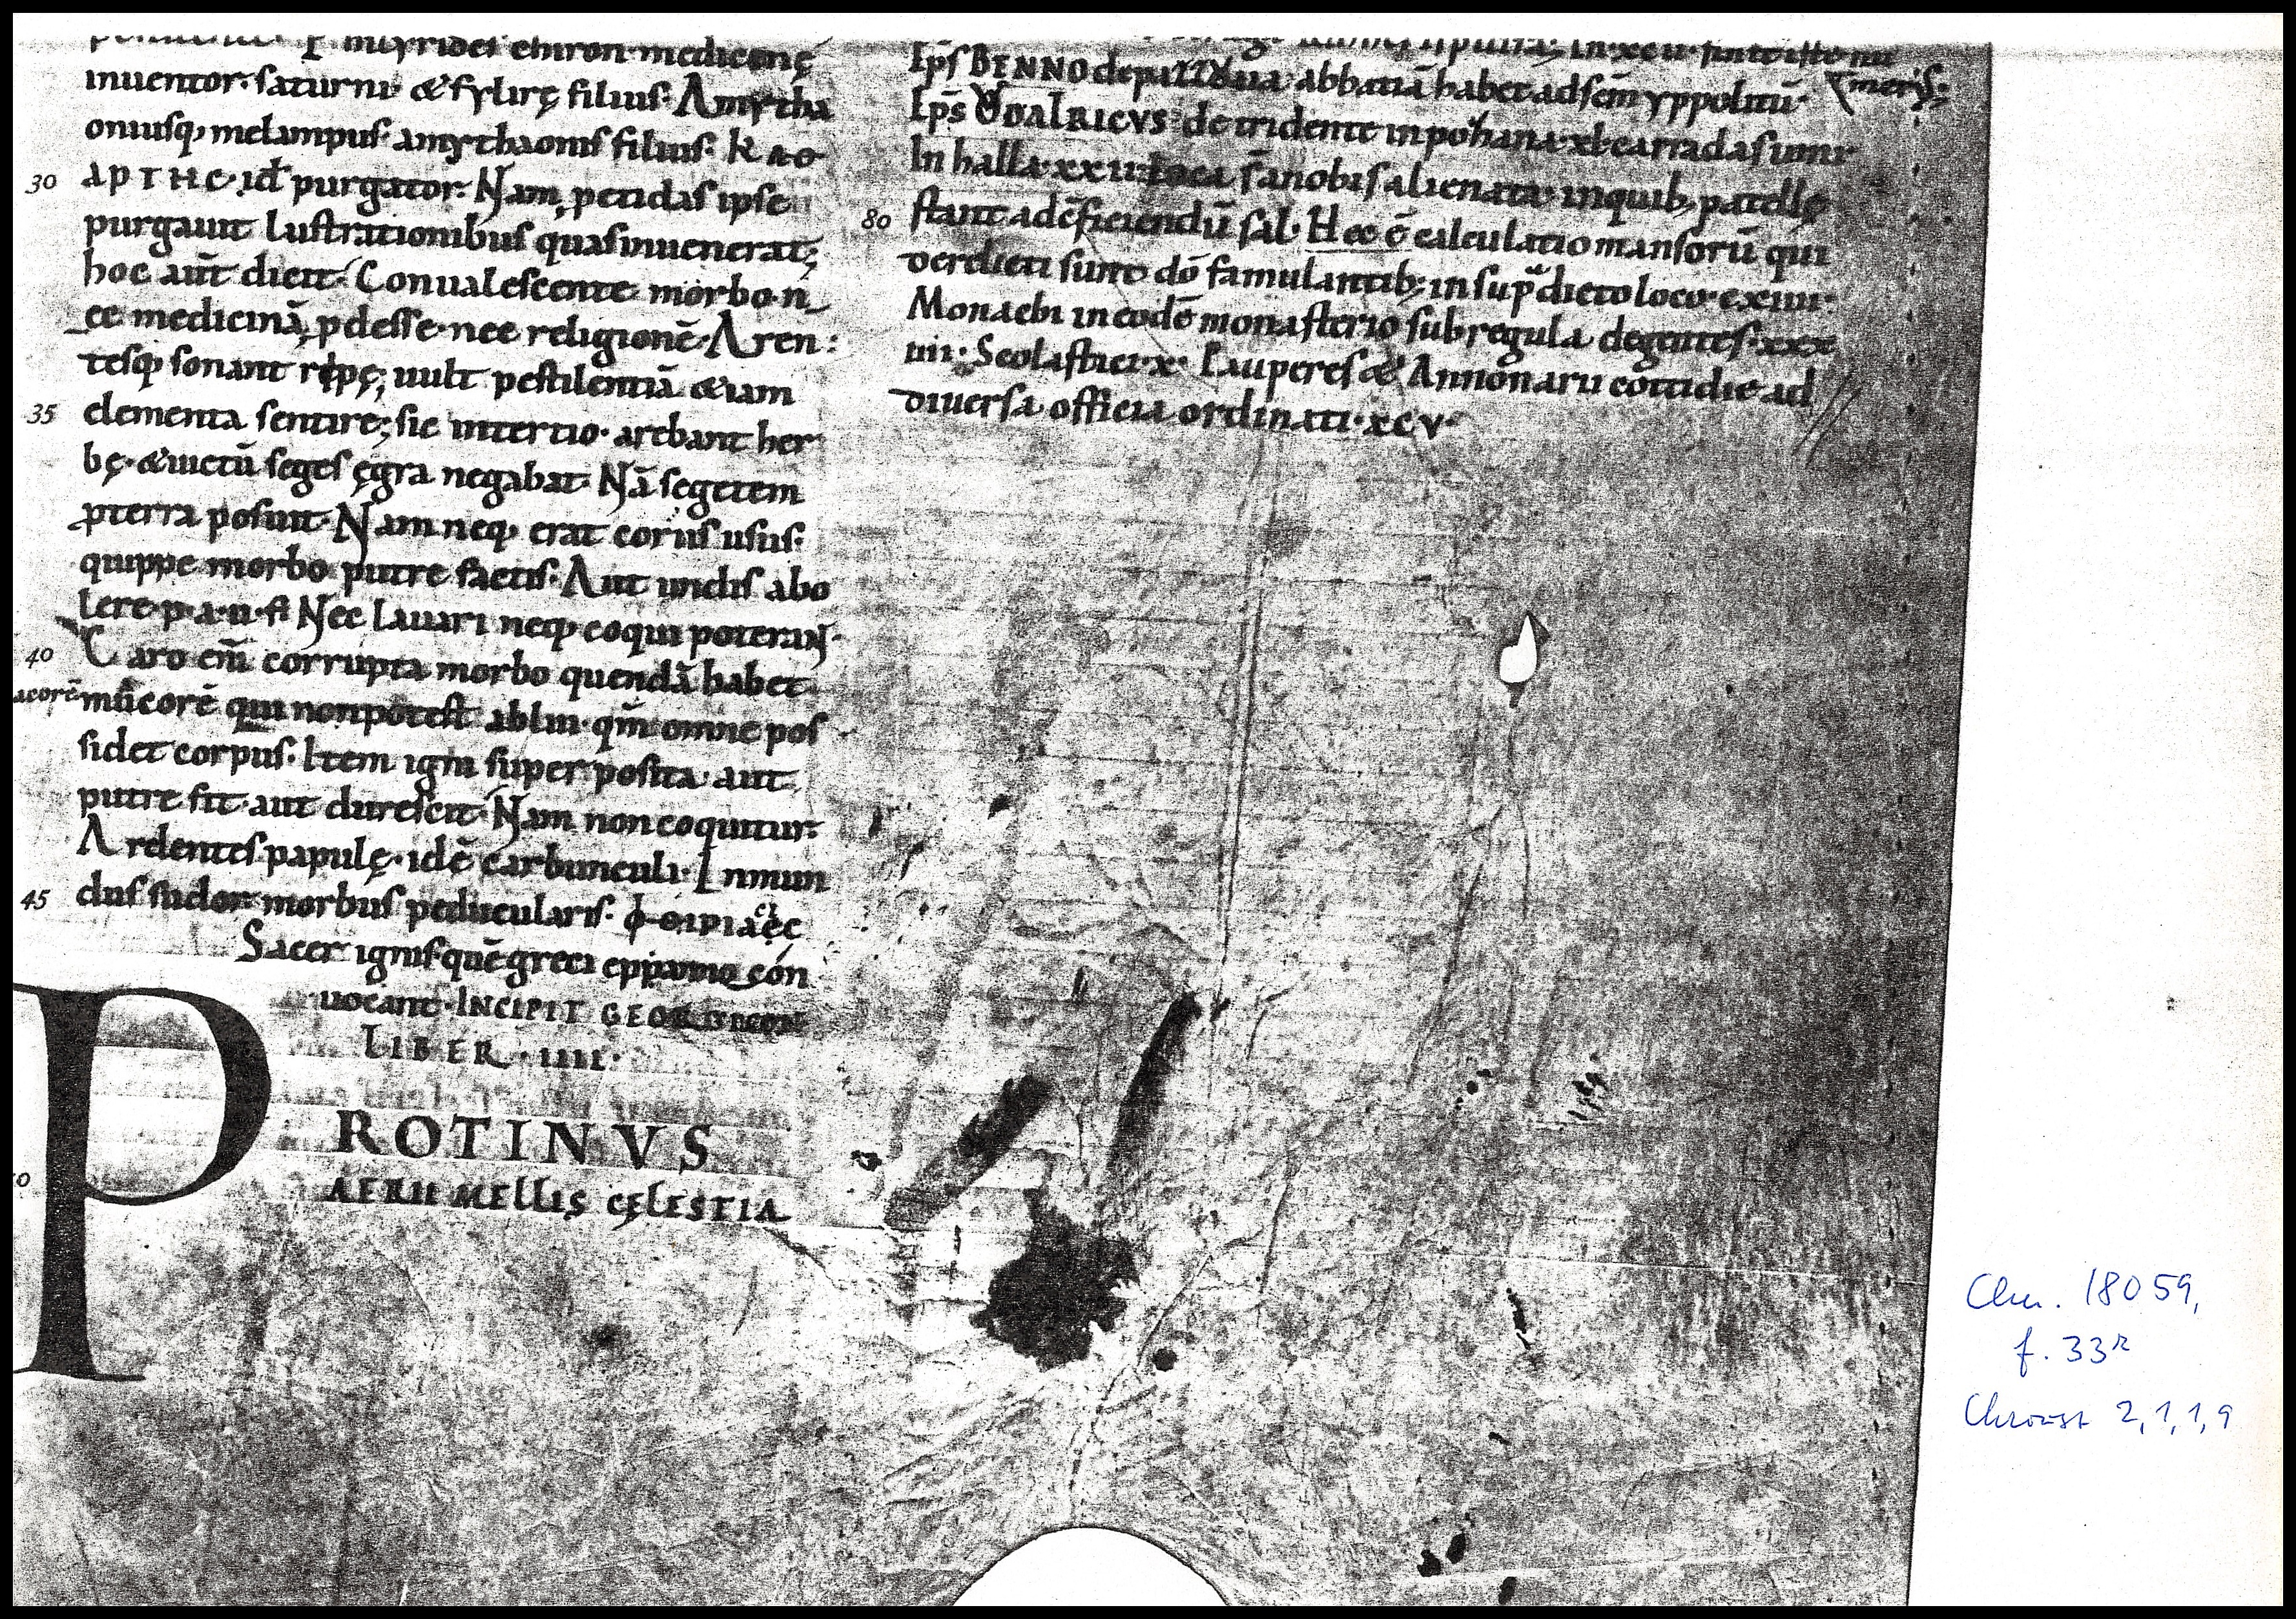 myrides chiron medicinę
inuentor· saturni· & fylirę filius· Amytha
oniusq; melampus· amythaonis filius· κ α θ
30 α ρ τ η c· id purgator· Nam petidas ipse
purgauit lustrationibus quas inuenerat;
hoc aūt dicit· Conualescente morbo n
ec medicinā pdesse· nec religionē· Aren:
tesq; sonant ripę; uult pestilentiā &iam
35 elementa sentire; sic in tertio· arebant her
bę· & uictū seges ęgra negabat· Nā segetem
pterra posuit· Nam neq; erat coriis usus·
quippe morbo putre factis· Aut undis abo
lere· p· a· u· fl· Nec lauari neq; coqui poteraN·
40 Caro enī corrupta morbo quendā habet
acorē mucorē qui non potest ablui· qm̄ omne pos
sidet corpus· Item igni super posita· aut
putre fit· aut durescit· Nam non coquitur·
Ardentes papulę· idē carbunculi· Inmun
45 dus sudor· morbus pedicularis·
Sacer ignis quē greci
uocant· INCIPIT GEORGICON
LIBER· IIII·
PROTINVS
AERII MELLIS CĘLESTIA
Ep̄s BENNO de patauua abbatiā habet ad sc̄m yppolitū·
Ep̄s VODALRICVS de tridente in pozhana· xl· carradas uini
In halla· xxii· loca s̄ a nobis alienata· in quib; patellę
80 stant ad efficiendū sal· Hec ē calculatio mansorū qui
derelicti sunt dō famulantib; in sup̄dicto loco· cxiiii·
Monachi in eodē monasterio sub regula degentes· xxx
iiii· Scolastici· x· Pauperes & Annonarii cottidie ad
diuersa officia ordinati· xcv·
Clm. 18059,
f. 33r
Chroust 2,1,1,9